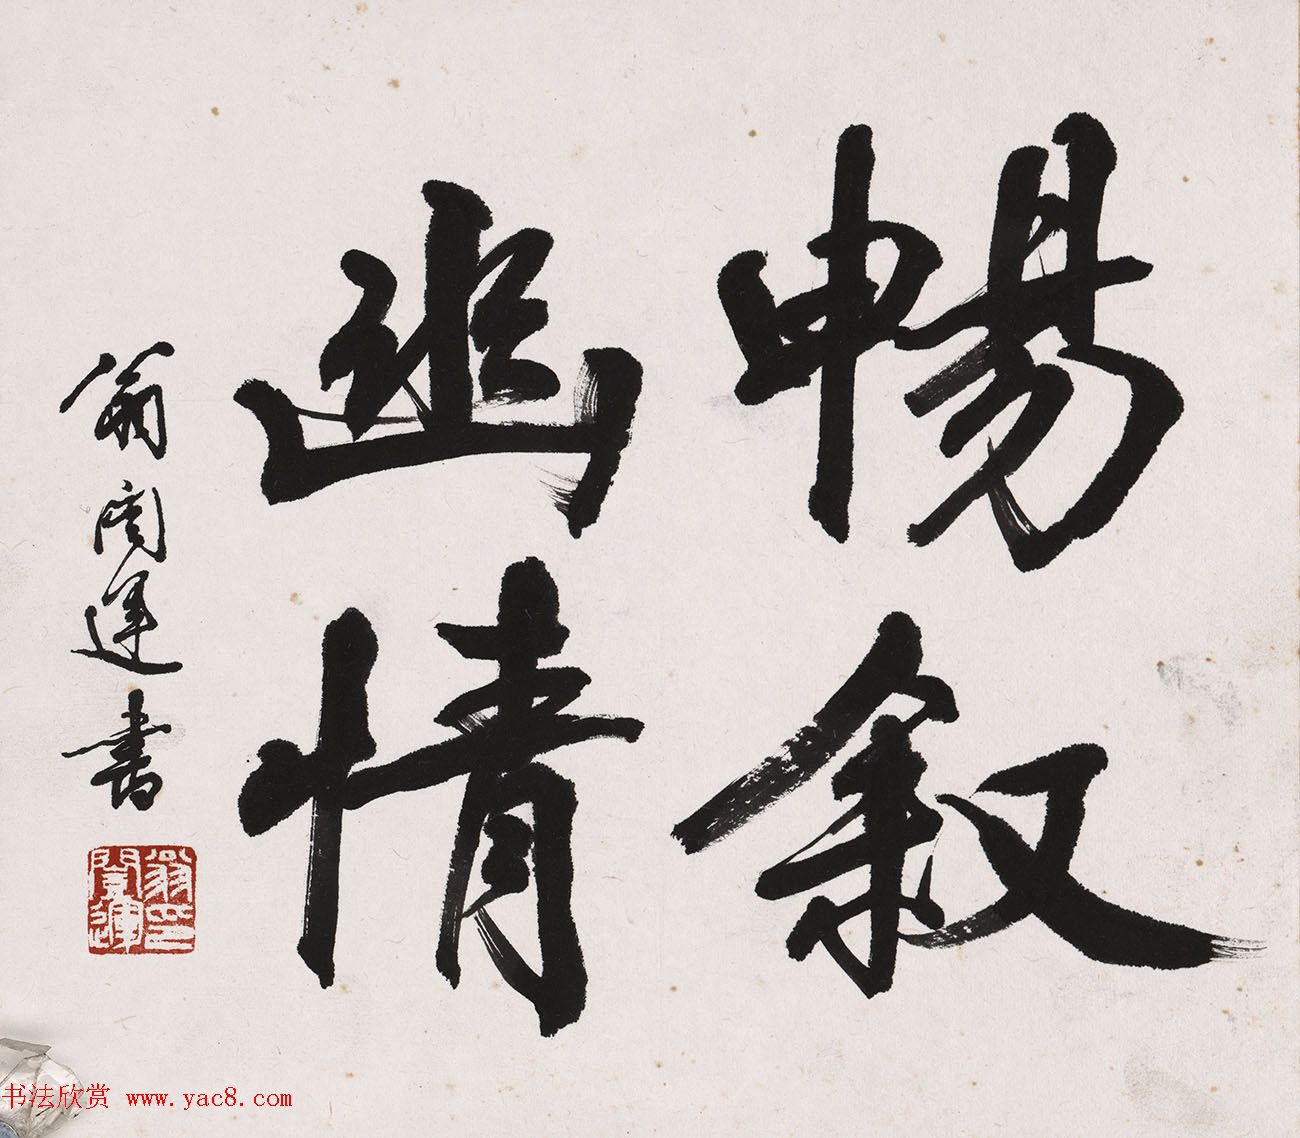 暢叙
幽情
翁闿運書
翁闓運印
书法欣赏 www.yac8.com